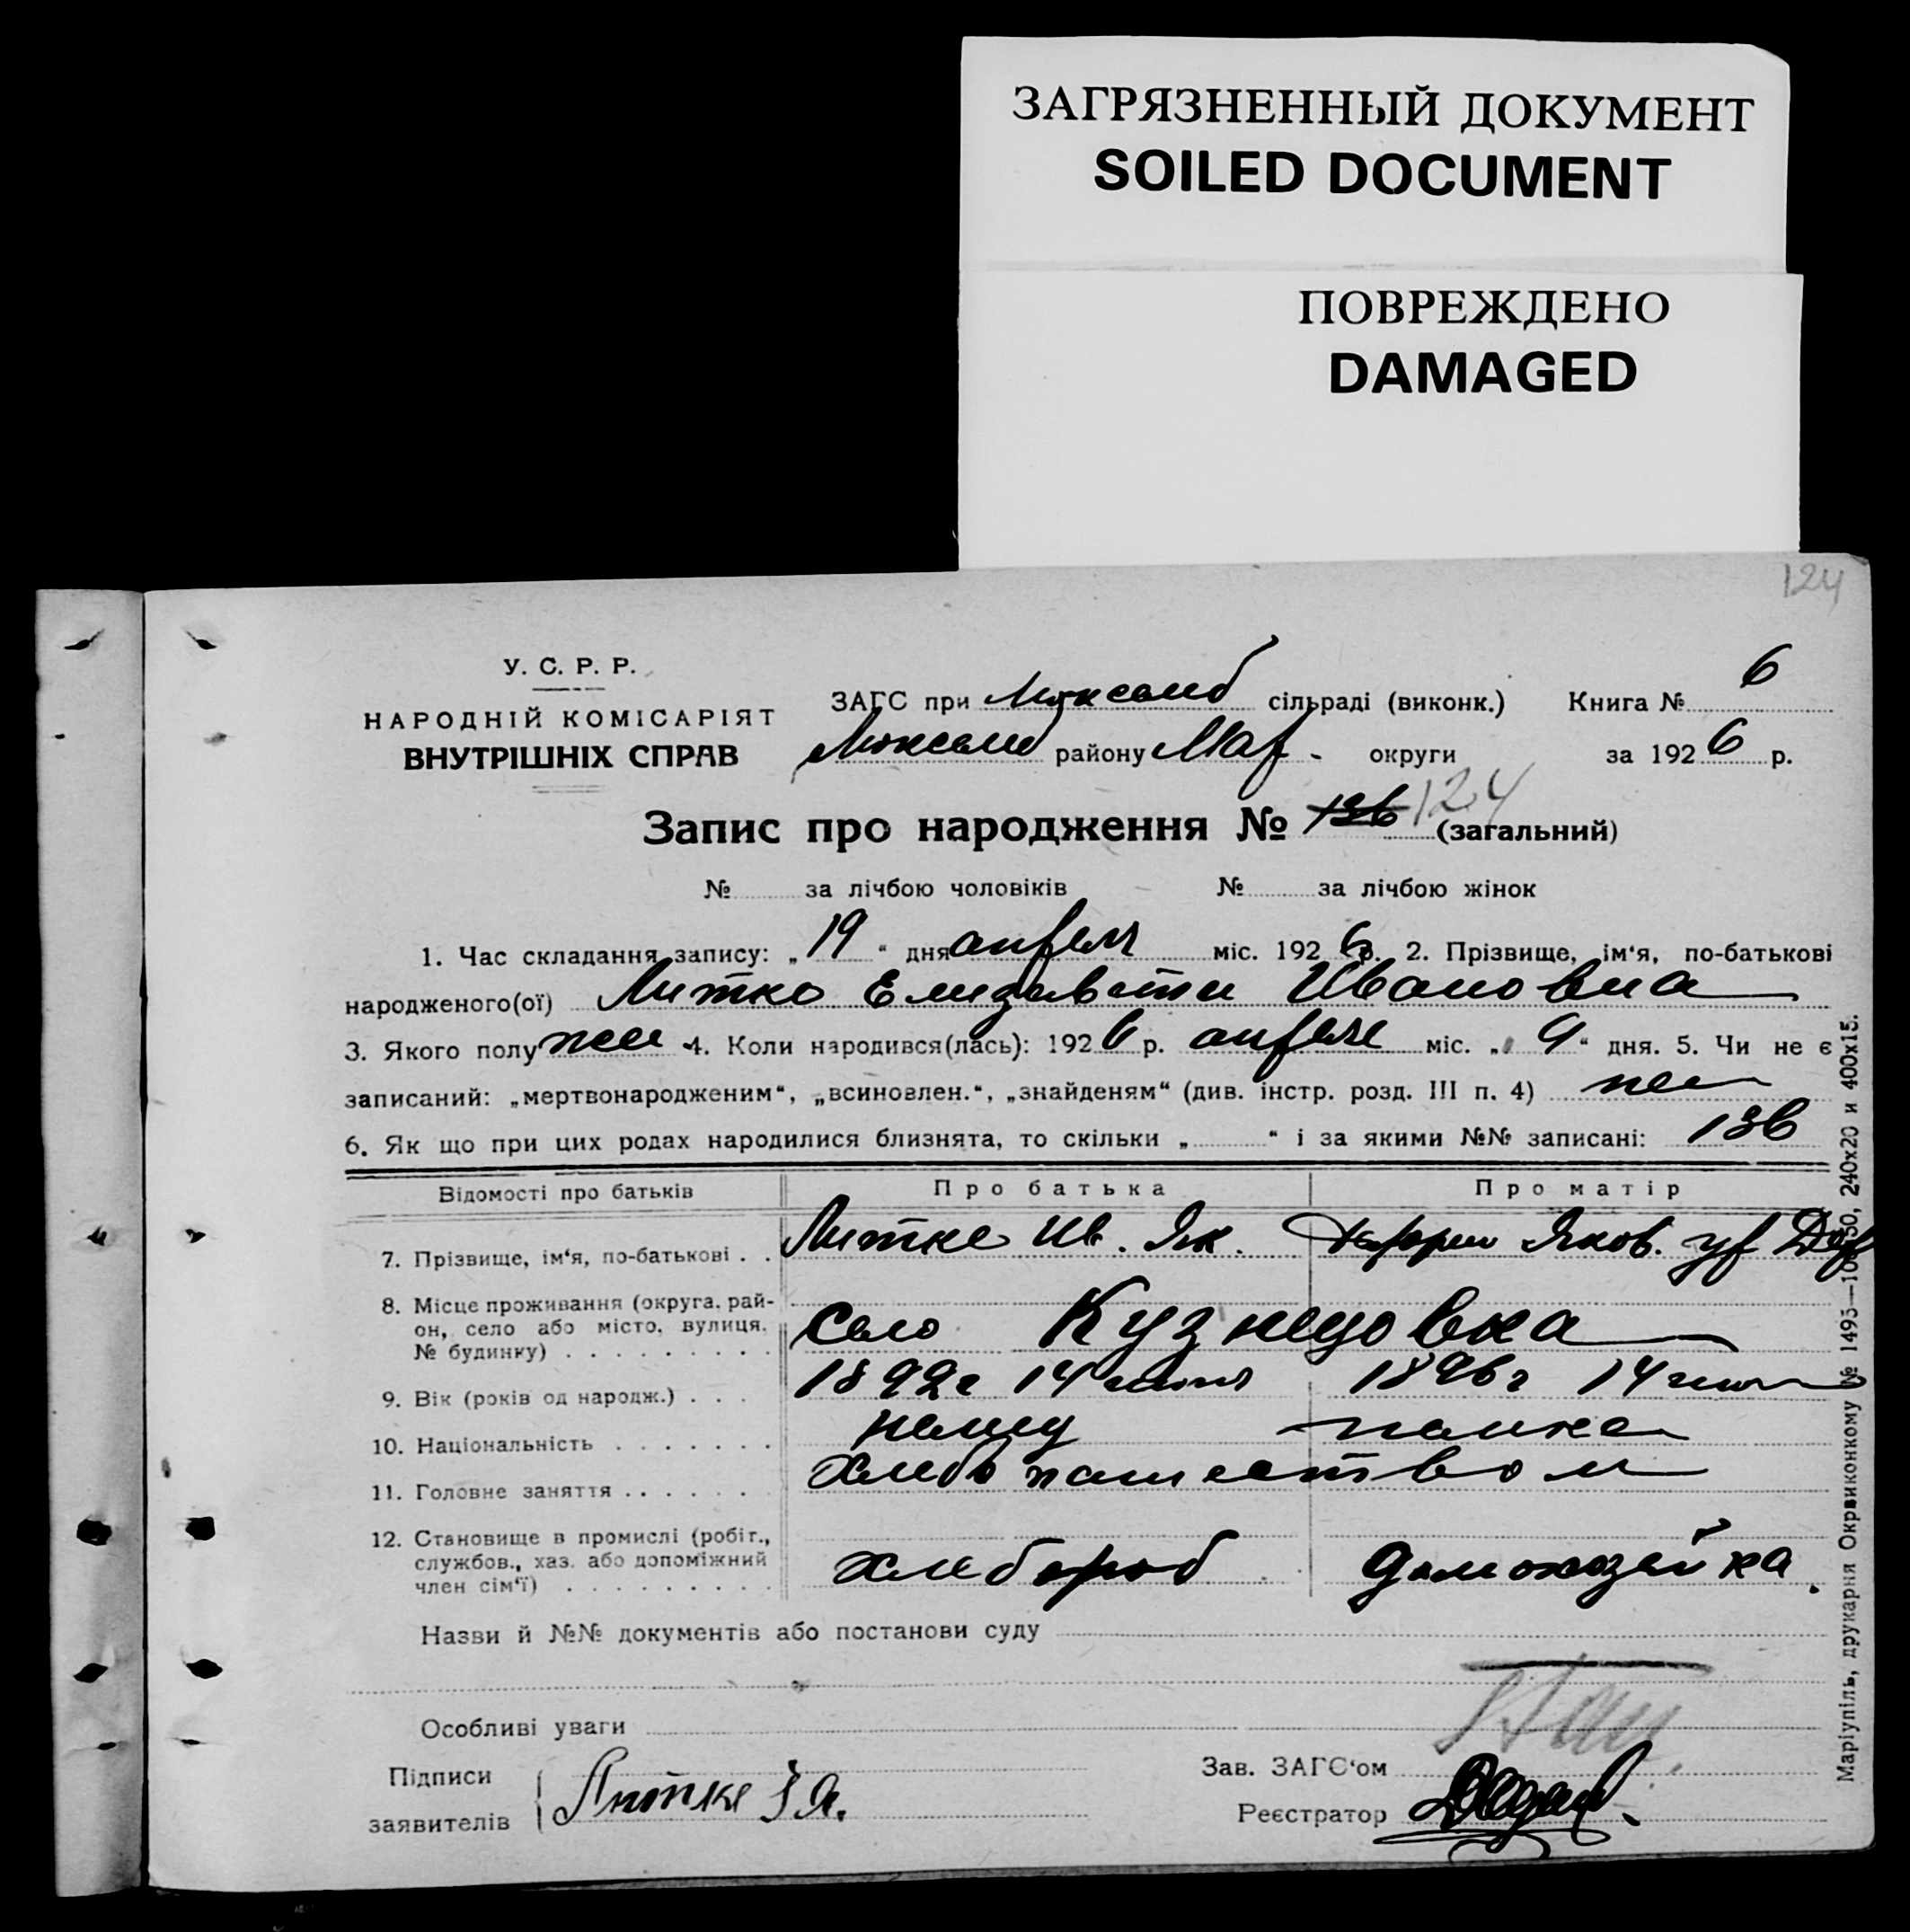 ЗАГРЯЗНЕННЫЙ ДОКУМЕНТ
SOILED DOCUMENT
ПОВРЕЖДЕНО
DAMAGED
124
У. С. Р. Р.
НАРОДНІЙ КОМІСАРІЯТ
ВНУТРІШНІХ СПРАВ
ЗАГС при сільраді (виконк.) Книга № 6
району Мар. округи за 1926 р.
Запис про народження № 136 124 (загальний)
№ за лічбою чоловіків № за лічбою жінок
1. Час складання запису: „19“ дня апреля міс. 1926 р. 2. Прізвище, ім‘я, по-батькові
народженого(ої) Литке Елизавета Ивановна
3. Якого полу жен 4. Коли народився(лась): 1926 р. апреля міс. „9“ дня. 5. Чи не є
записаний: „мертвонародженим“, „всиновлен.“, „знайденям“ (див. інстр. розд. III п. 4) нет
6. Як що при цих родах народилися близнята, то скільки „ “ і за якими №№ записані: 136
Відомості про батьків Про батька Про матір
7. Прізвище, ім‘я, по-батькові . . Литке Ив. Як. Яков.
8. Місце проживання (округа, рай-
он, село або місто, вулиця,
№ будинку) Село Кузнецовка
9. Вік (років од народж.) . . . 1892г 14 1896г 14
10. Національність немец немка
11. Головне заняття хлебопашеством
12. Становище в промислі (робіт.,
службов., хаз. або допоміжний
член сім‘ї) хлебороб домохозяйка.
Назви й №№ документів або постанови суду
Особливі уваги
Підписи
заявителів Литке
Зав. ЗАГС‘ом
Реєстратор
Маріупіль, друкарня Окрвиконкому № 1495— 240х20 и 400х15.